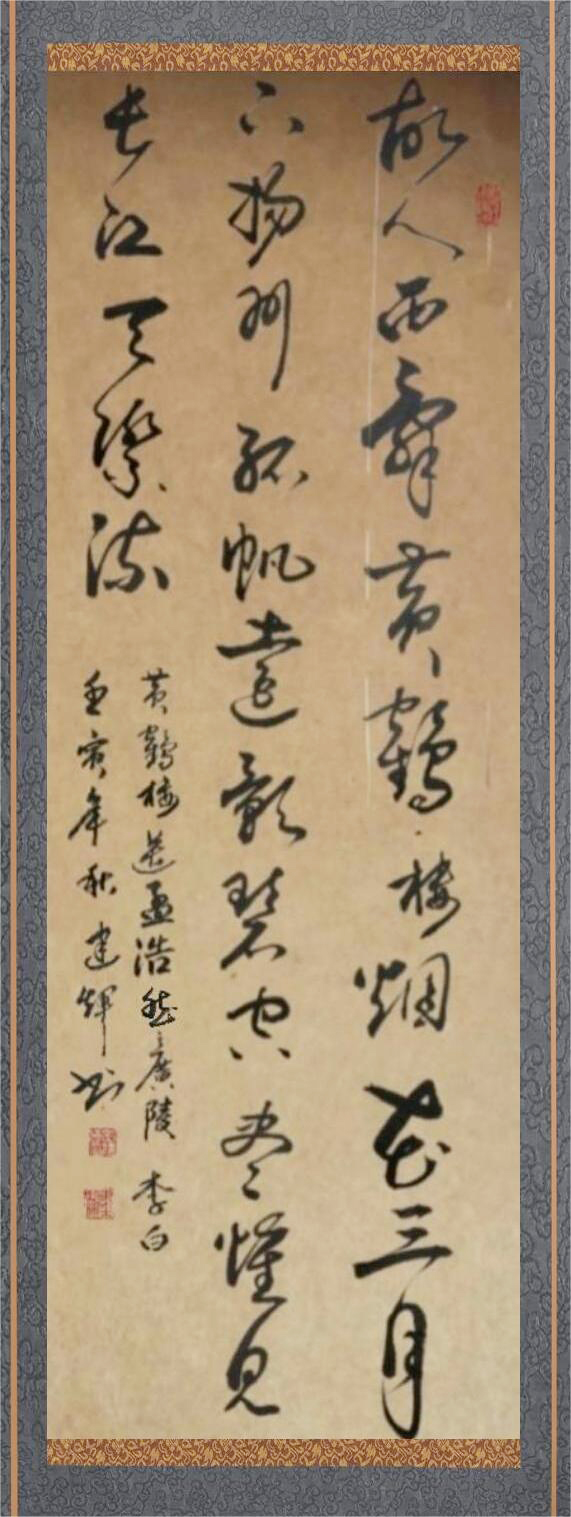 故人西辭黄鶴樓烟花三月
下揚州孤帆遠影碧空尽惟見
長江天際流
黄鶴樓送孟浩然廣陵 李白
壬寅年秋建輝书